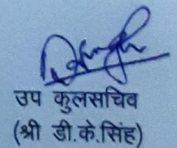 उप कुलसचिव
(श्री डी.के.सिंह)